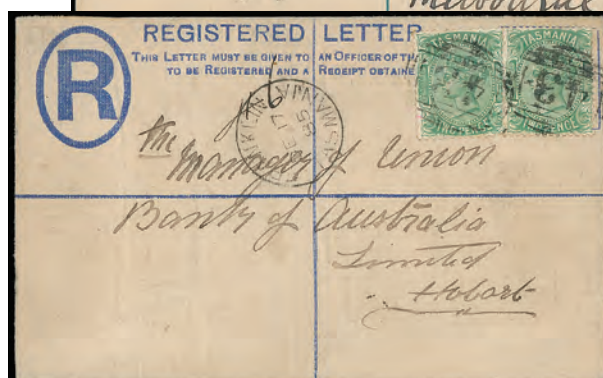 Melbourne
REGISTERED LETTER
THIS LETTER MUST BE GIVEN TO AN OFFICER OF THE
TO BE REGISTERED AND A RECEIPT OBTAINE
R
TASMANIA TASMANIA
The
Manager of Union
Bank of Australia
Limited
Hobart